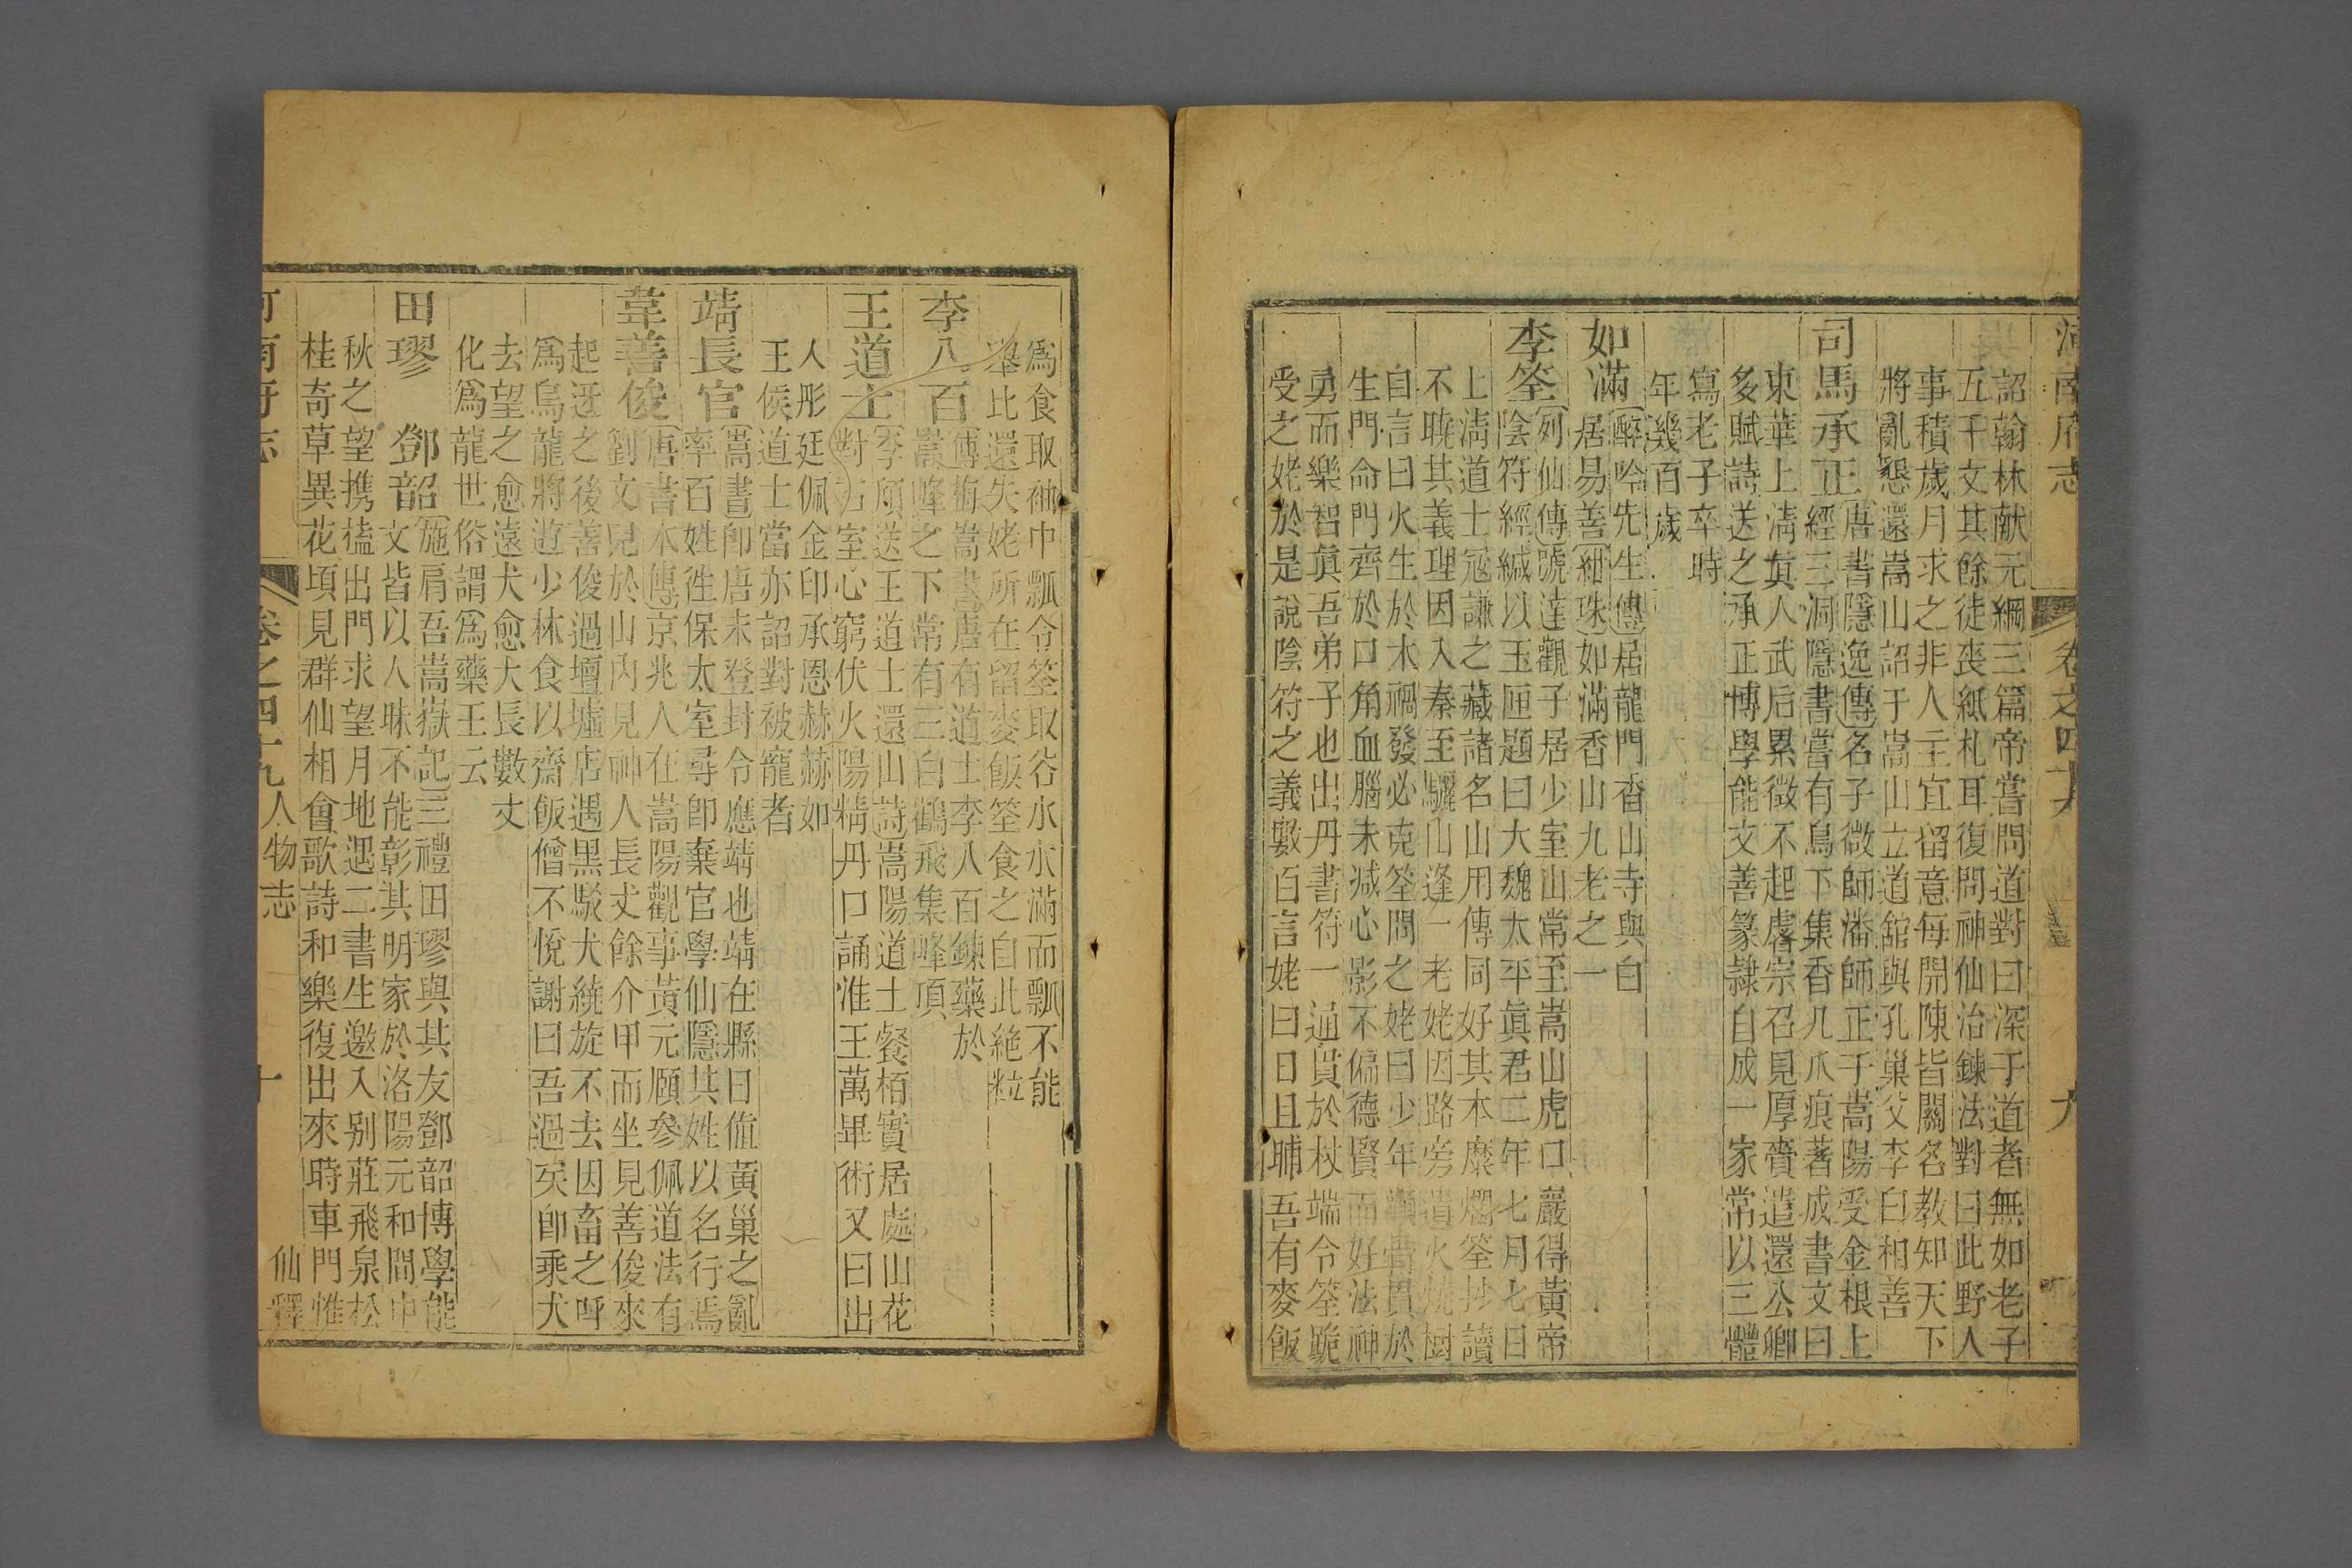 河南府志 卷之四十九 九
詔翰林献元綱三篇帝嘗問道對曰深于道者無如老子
五千文其餘徒喪紙札耳復問神仙治鍊法對曰此野人
事積歲月求之非人主宜留意每開陳皆關名教知天下
將亂懇還嵩山詔于嵩山立道舘與孔巢父李白相善
司馬承正 唐書隱逸傳名子微師潘師正于嵩陽受金根上
經三洞隱書嘗有鳥下集香几爪痕著成書文曰
東華上清眞人武后累徵不起睿宗召見厚賚遣還公卿
多賦詩送之承正博學能文善篆隷自成一家常以三體
寫老子卒時
年幾百歲
如滿 醉吟先生傳居龍門香山寺與白
居易善紺珠如滿香山九老之一
李筌 列仙傳號達觀子居少室山常至嵩山虎口巖得黃帝
陰符經緘以玉匣題曰大魏太平眞君二年七月七日
上清道士寇謙之藏諸名山用傳同好其本糜爛筌抄讀
不曉其義理因入秦至驪山逢一老姥因路旁遺火燒樹
自言曰火生於木禍發必克筌問之姥曰少年顴骨貫於
生門命門齊於口角血腦未减心影不偏德賢而好法神
勇而樂智眞吾弟子也出丹書符一通貫於杖端令筌跪
受之姥於是說陰符之義數百言姥曰日且晡吾有麥飯
爲食取袖中瓢令筌取谷水水滿而瓢不能
舉比還失姥所在留麥飯筌食之自此絶粒
李八百 傅梅嵩書唐有道士李八百鍊藥於
嵩峰之下常有三白鶴飛集峰頂
王道士 李頎送王道士還山詩嵩陽道士餐栢實居處山花
對石室心窮伏火陽精丹口誦淮王萬畢術又曰出
人彤廷佩金印承恩赫赫如
王侯道士當亦詔對被寵者
靖長官 嵩書卽唐末登封令應靖也靖在縣日値黃巢之亂
率百姓徃保太室尋卽棄官學仙隱其姓以名行焉
韋善俊 唐書本傳京兆人在嵩陽觀事黃元願參佩道法有
劉文見於山内見神人長丈餘介甲而坐見善俊來
起迓之後善俊過壇墟店遇黑駁犬繞旋不去因畜之呼
爲烏龍將遊少林食以齋飯僧不悅謝曰吾過矣卽乘犬
去望之愈遠犬愈大長數丈
化爲龍世俗謂爲藥王云
田璆 鄧韶 施肩吾嵩嶽記三禮田璆與其友鄧韶博學能
文皆以人昧不能彰其明家於洛陽元和間中
秋之望携榼出門求望月地遇二書生邀入別莊飛泉松
桂奇草異花頃見群仙相會歌詩和樂復出來時車門惟
河南府志 卷之四十九 人物志 十 仙釋